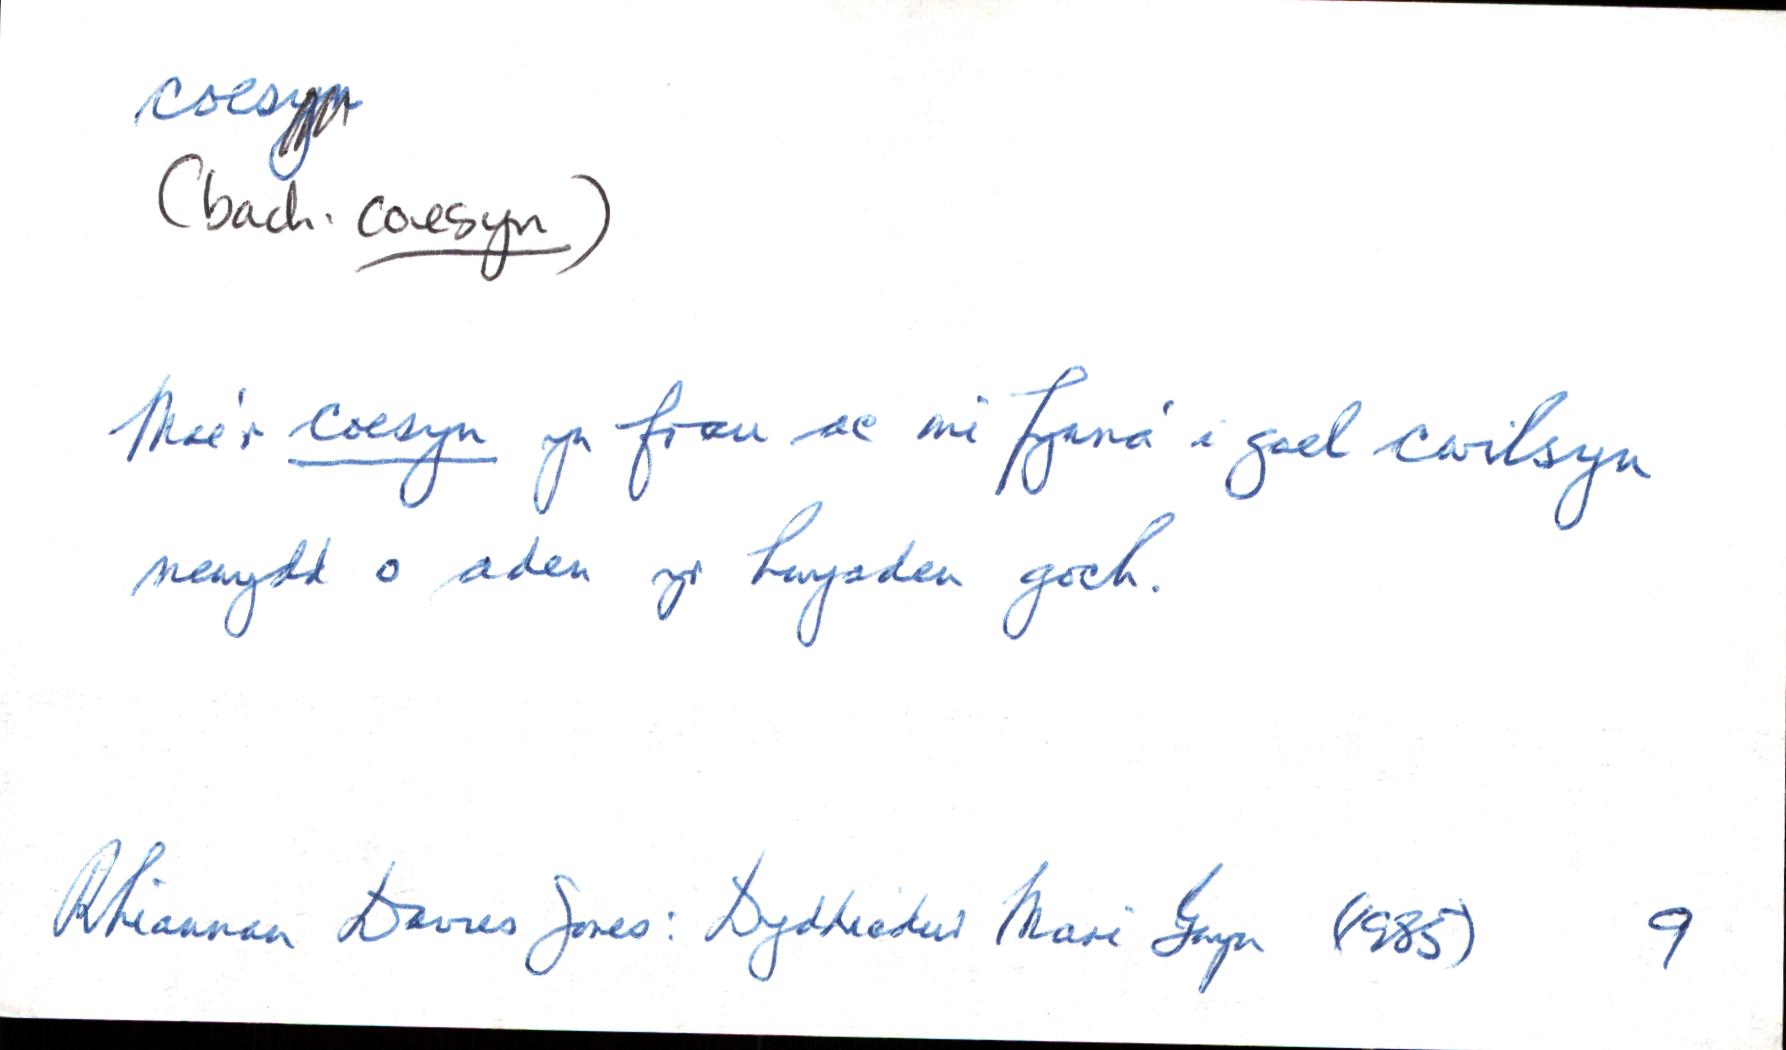 coesyn
(bach. coesyn)
Mae'r coesyn yn frau ac mi fynna' i gael cwilsyn
newydd o aden yr hwyaden goch.
Rhiannon Davies Jones: Dyddiadur Mari Gwyn (1985) 9